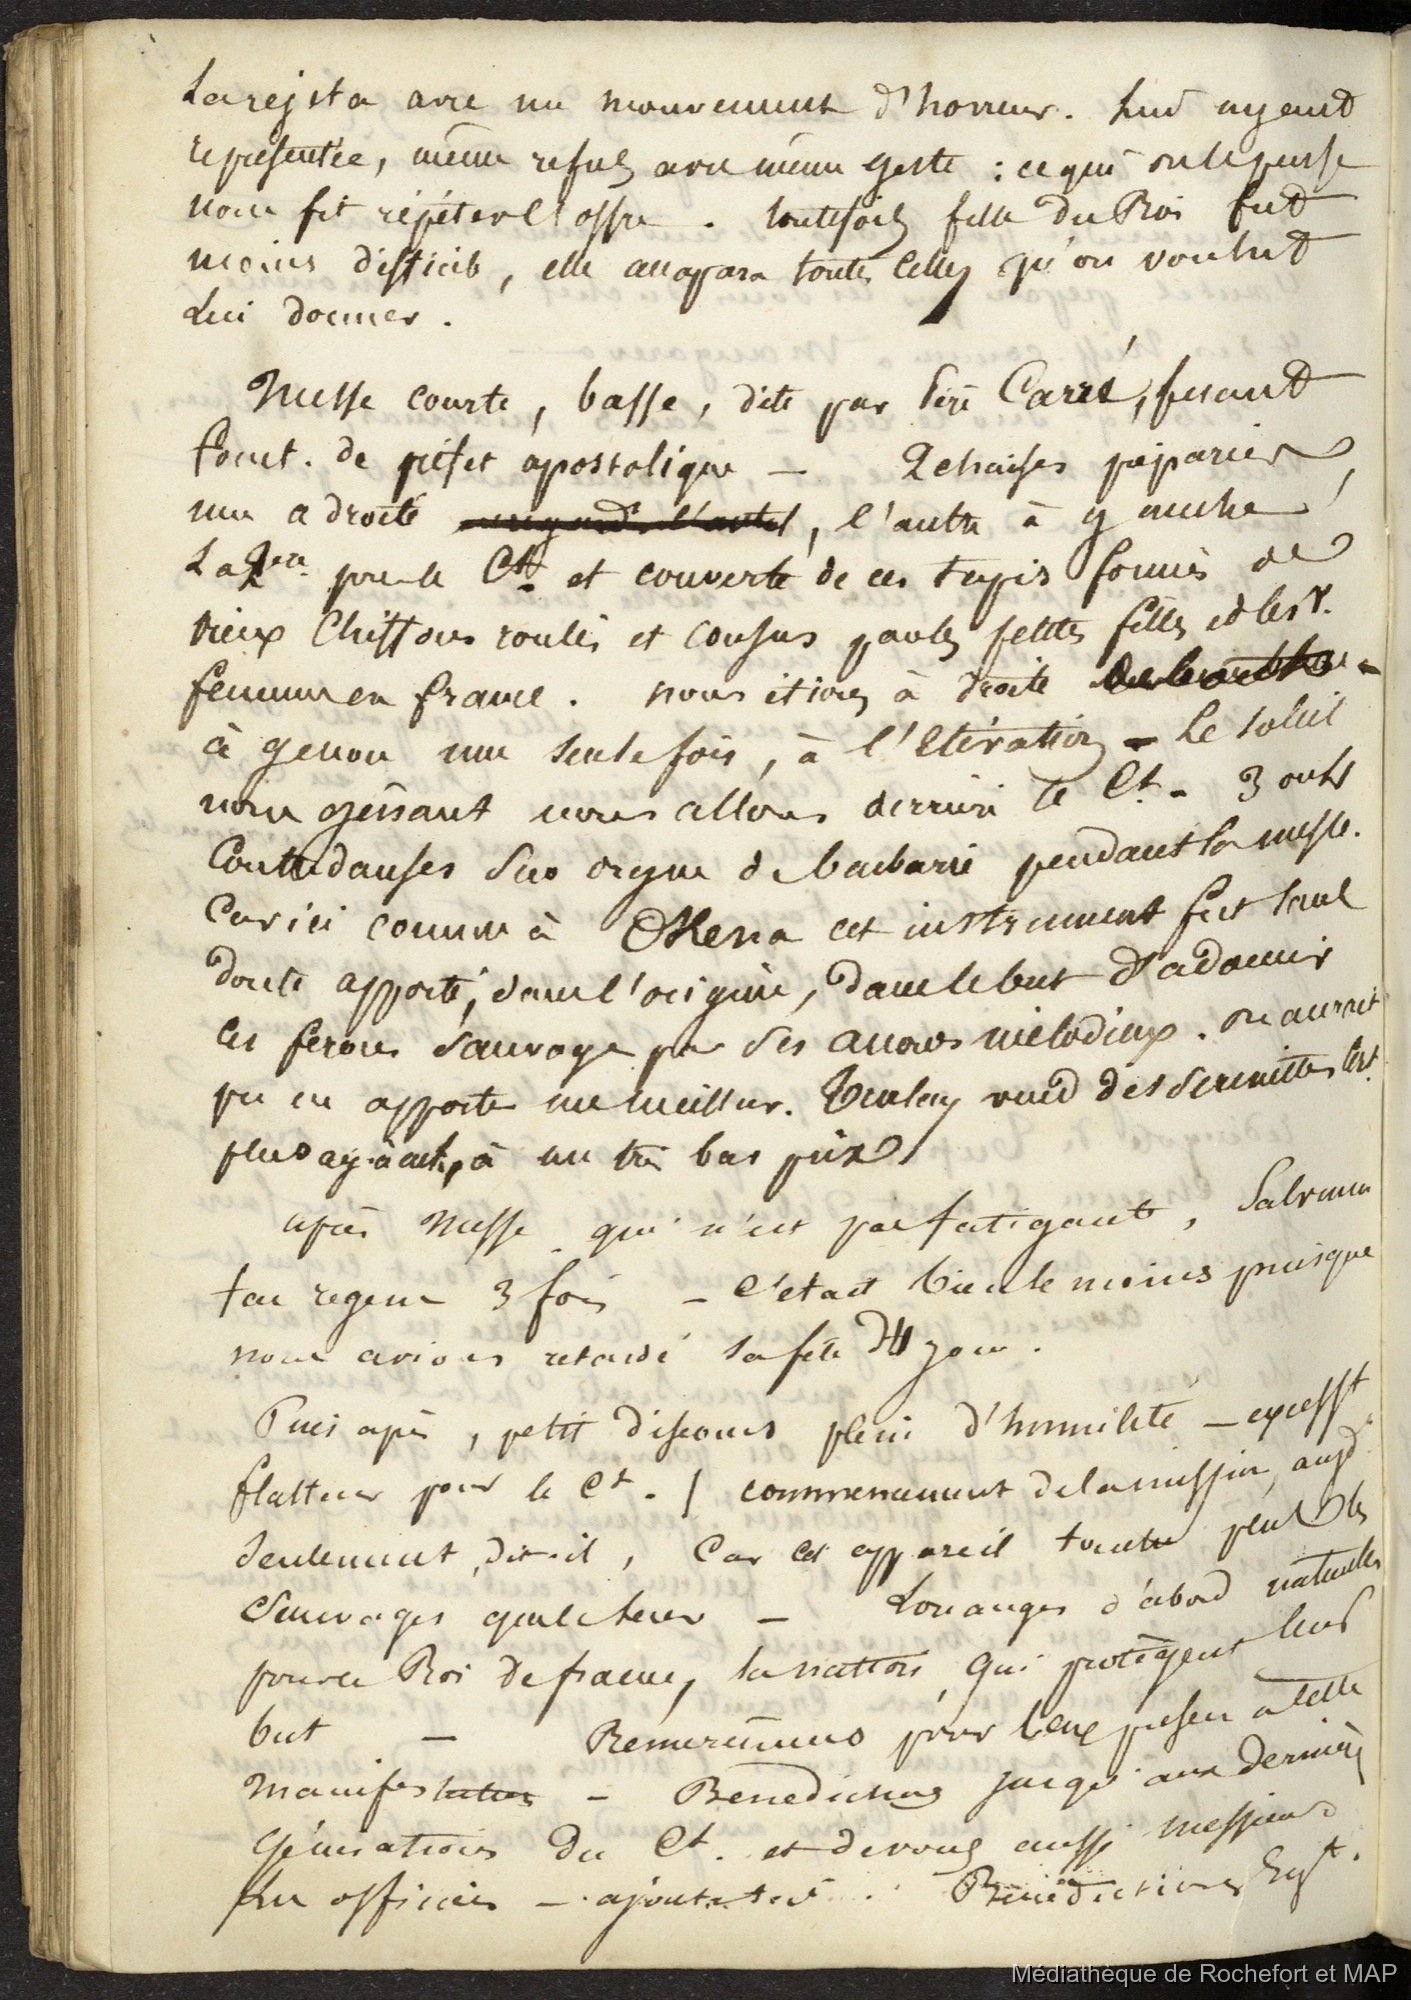 La rejeta avec un mouvement d'horreur. Lui ayant
représentée, même refus avec même geste : ce qui on le pense
nous fit répéter l'offre. toutefois fille du Roi fut
moins difficile, elle accapara toutes celles qu'on voulut
Lui donner.
Messe courte, basse, dite par Père Carré, fesant
fonct. de préfet apostolique — 2 chaises préparées,
une a droite , l'autre à gauche
La 2eme pour le Ct. et couverte de ces tapis formés de
vieux chiffons roulés et cousus par les petites filles et les v.
femmes en france. nous étions à droite
à genou une seule fois, à l'Elévation — Le soleil
nous gênant nous allons derrière le Ct. — 3 ou 4
Contredanses sur orgue de barbarie pendant la messe.
Car ici comme à cet instrument fut sans
doute apporté, dans l'origine, dans le but d'adoucir
les féroces sauvages par ses accords mélodieux. on aurait
pu en apporter un meilleur. vend des serinettes
plus à un très bas prix
après Messe qui n'est pas fatigante, Salvum
fac regem 3 fois — C'était bien le moins puisque
nous avions retardé sa fête jour.
Puis après, petit discours plein d'humilité — excesst
flatteur pour le Ct. / commencement de la mission, aujd
seulement, dit-il, car cet appareil touche plus les
Sauvages que — Louanges d'abord naturelles
pour le Roi de france, la nation, qui protègent leur
but — Remerciemens pour
manifestation — Bénédictions jusqu'aux dernières
générations du Ct. et de vous aussi messieurs
Les officiers — ajouta-t-il. Bénédictions
Médiathèque de Rochefort et MAP